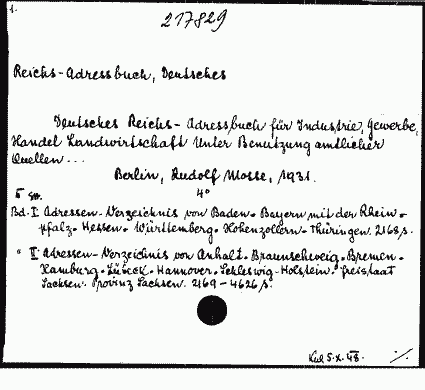 1.
217829
Reichs-Adressbuch, Deutsches
Deutsches Reichs-Adressbuch für Industrie, Gewerbe,
Handel Landwirtschaft Unter Benutzung amtlicher
Quellen...
Berlin, Rudolf Mosse, 1931.
4°
Bd. I. Adressen-Verzeichnis von Baden. Bayern mit der Rhein-
pfalz. Hessen. Württemberg. Hohenzollern. Thüringen. 2168 s.
" II Adressen-Verzeichnis von Anhalt. Braunschweig. Bremen.
Hamburg. Lübeck. Hannover. Schleswig-Holstein. Freistaat
Sachsen. Provinz Sachsen. 2169-4626 s.
5.X.48.
./.